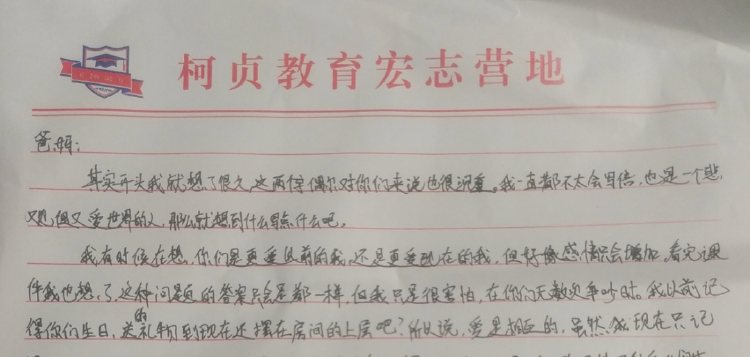 柯贞教育宏志营地
爸妈:
其实开头我就想了很久,这两字偶尔对你们来说也很沉重。我一直都不太会写信,也是一个悲
观但又爱世界的人,那么就想到什么写点什么吧。
我有时候在想,你们是更爱以前的我,还是更爱现在的我,但好像感情只会增加,看完课
件我也想了,这种问题的答案只会是都一样,但我只是很害怕,在你们无数次争吵时。我以前记
得你们生日,送的礼物到现在还摆在房间的上层吧?所以说,爱是相互的,虽然我现在只记